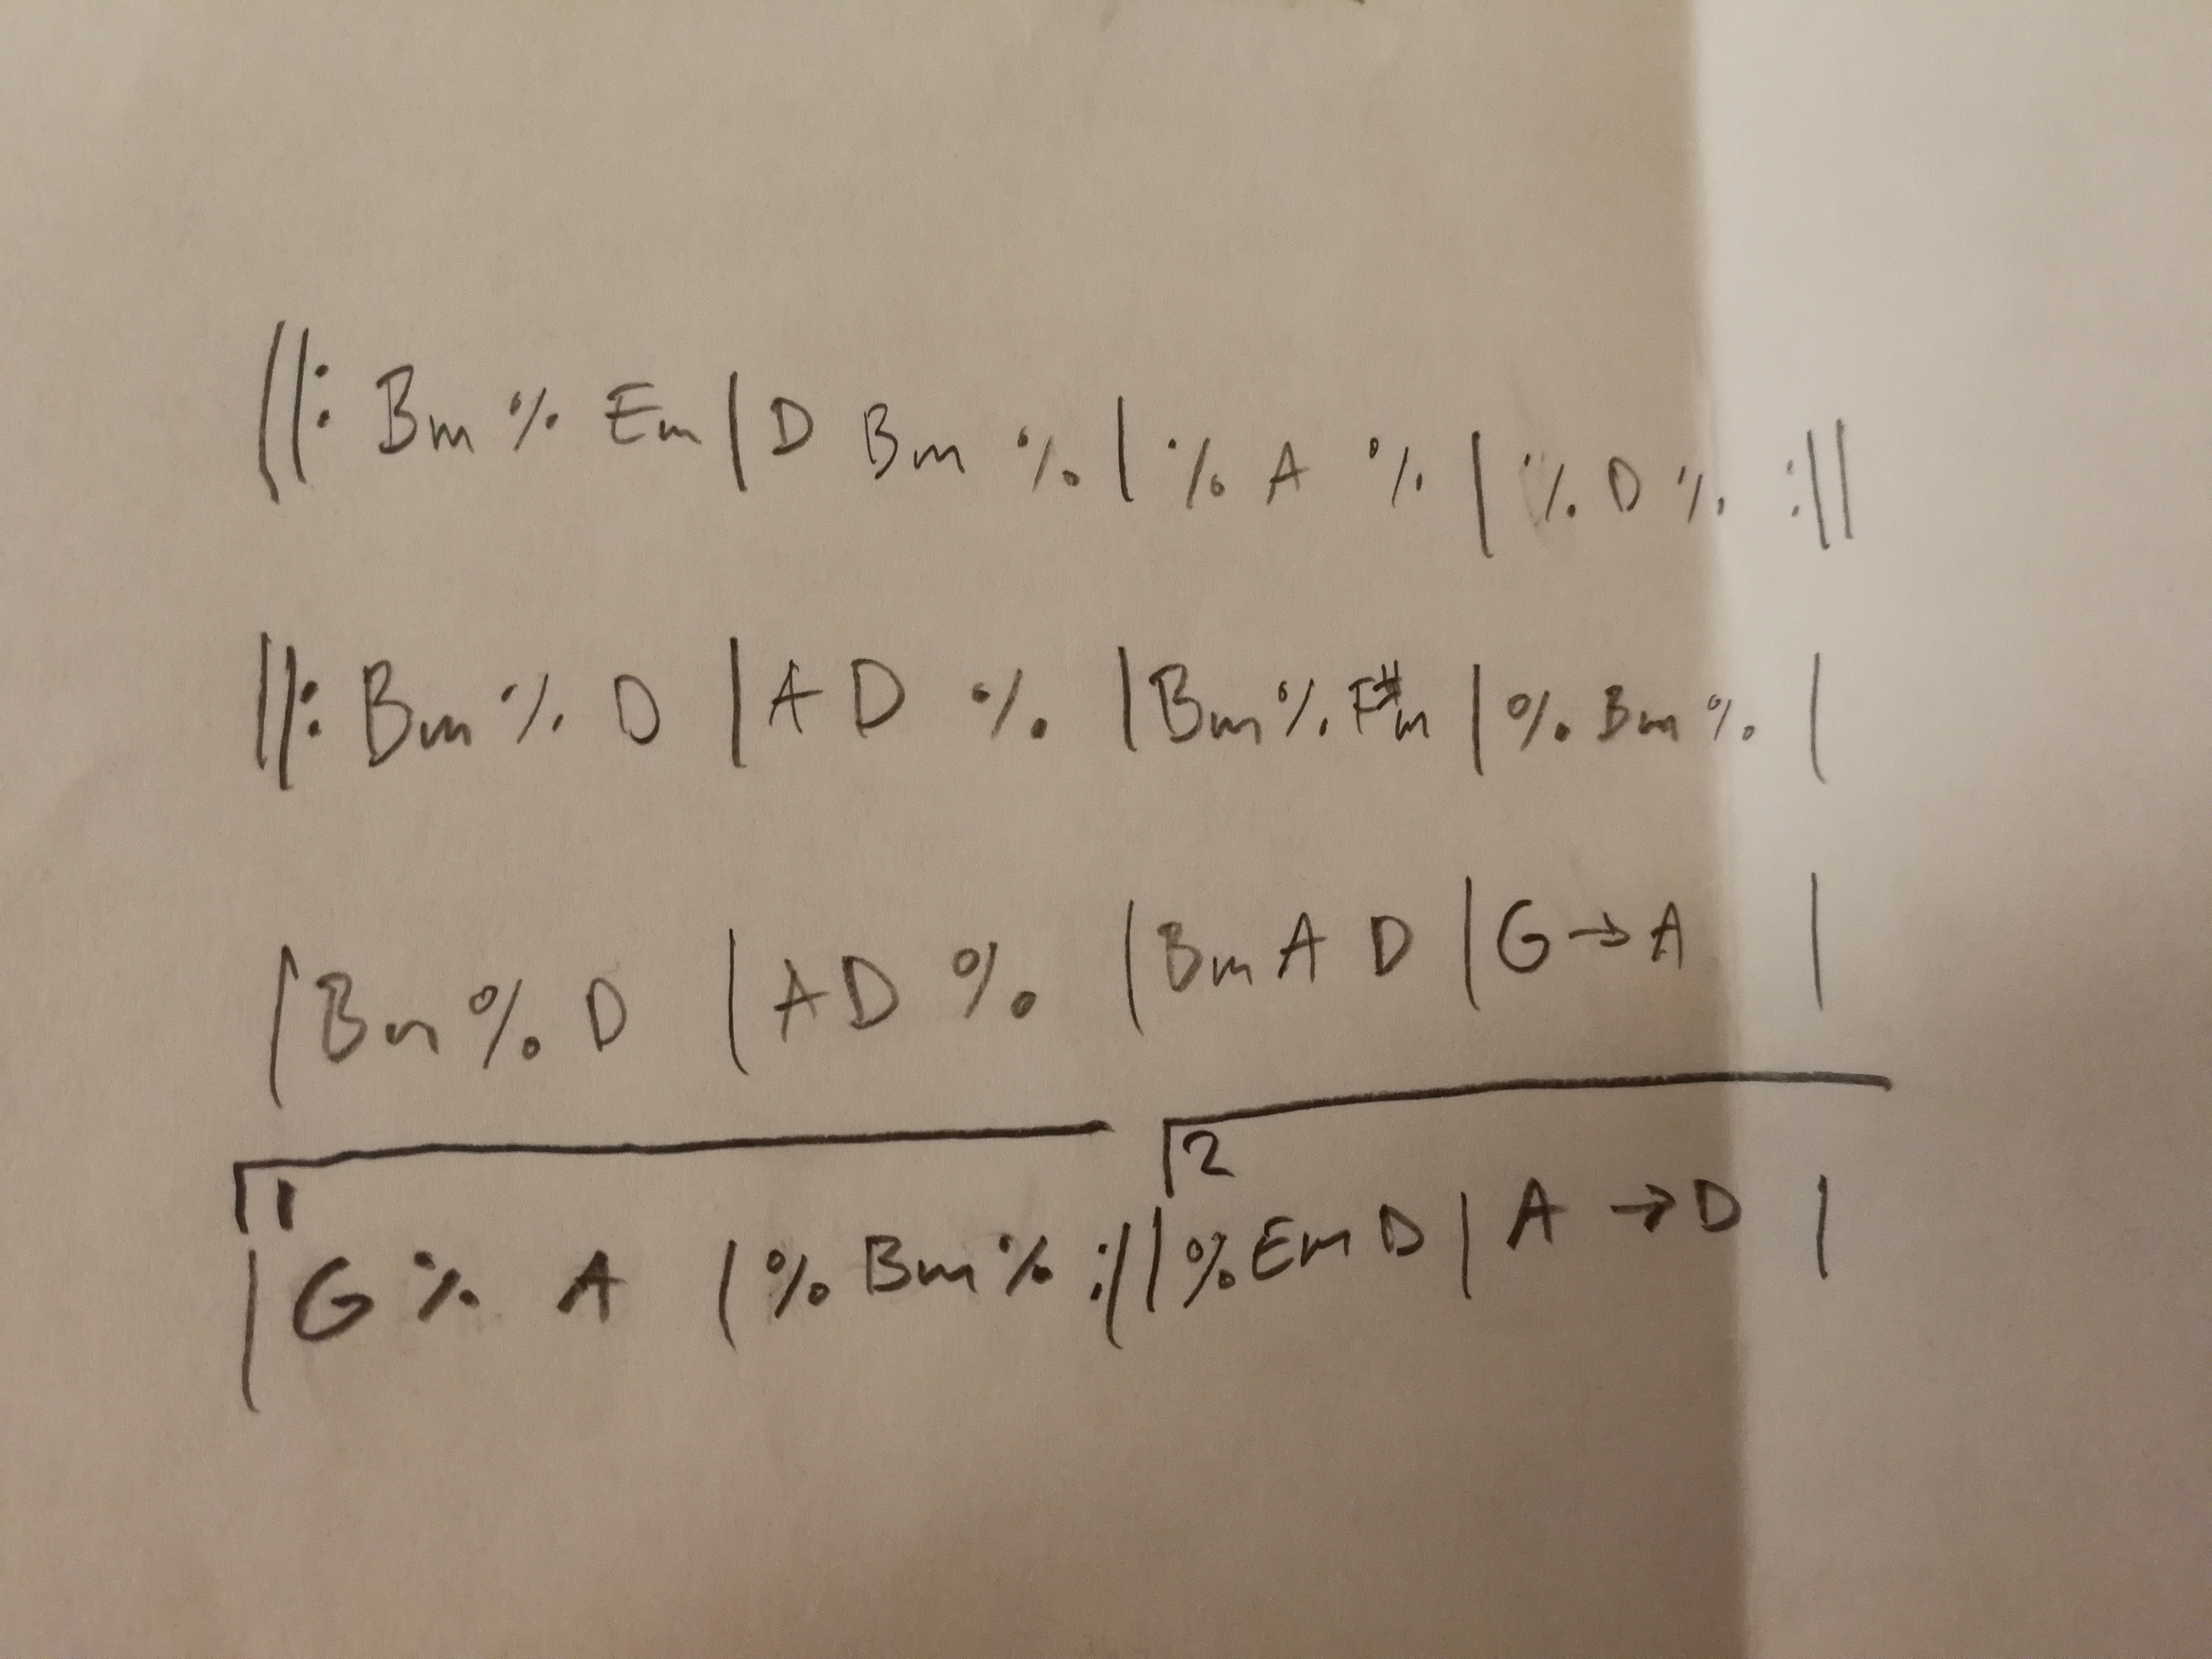 ||: Bm % Em | D Bm % | % A % | % D % :||
||: Bm % D | A D % | Bm % F#m | % Bm % |
| Bm % D | A D % | Bm A D | G → A |
1 2
| G % A | % Bm % :|| % Em D | A → D |